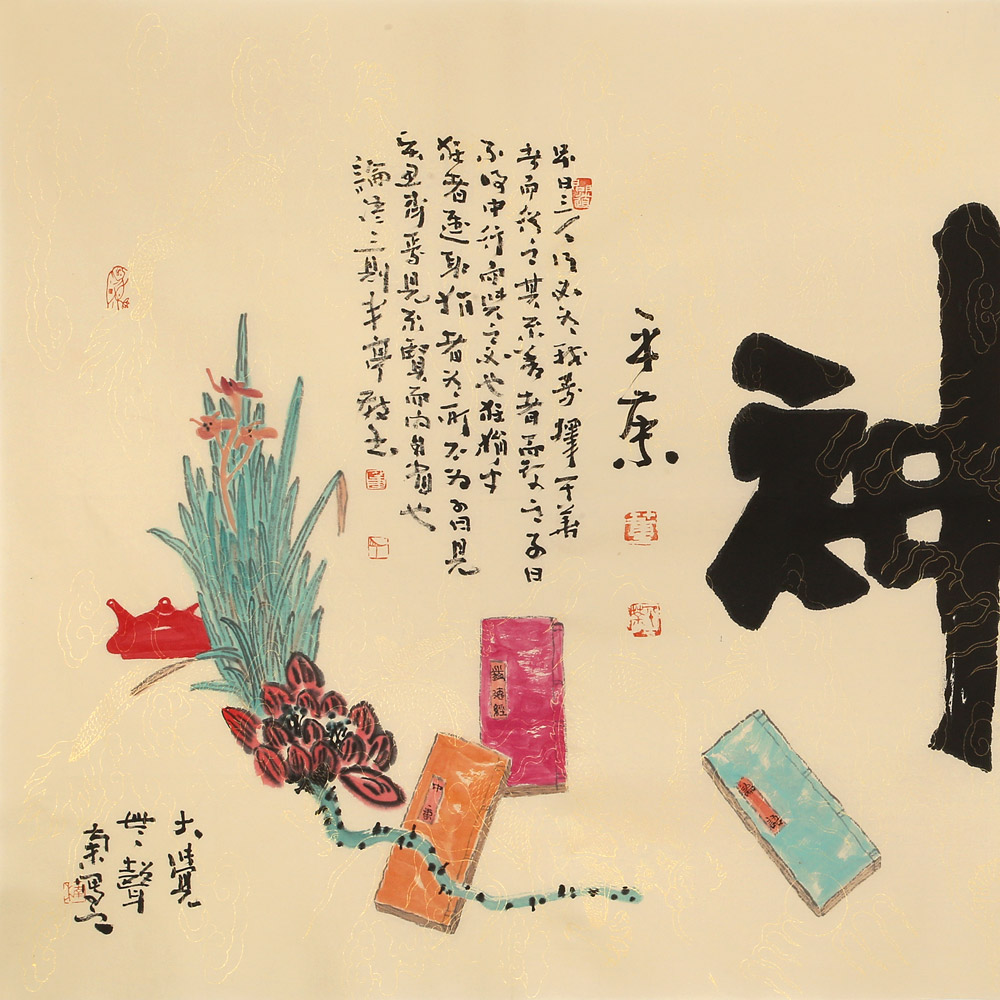 神
子曰三人行必有我師焉擇其善
者而從之其不善者而改之子曰
不得中行而與之必也狂狷乎
狂者進取狷者有所不為子曰見
賢思齊焉見不賢而內自省也
論語三則半亭敬書
道德經
中庸
大覺